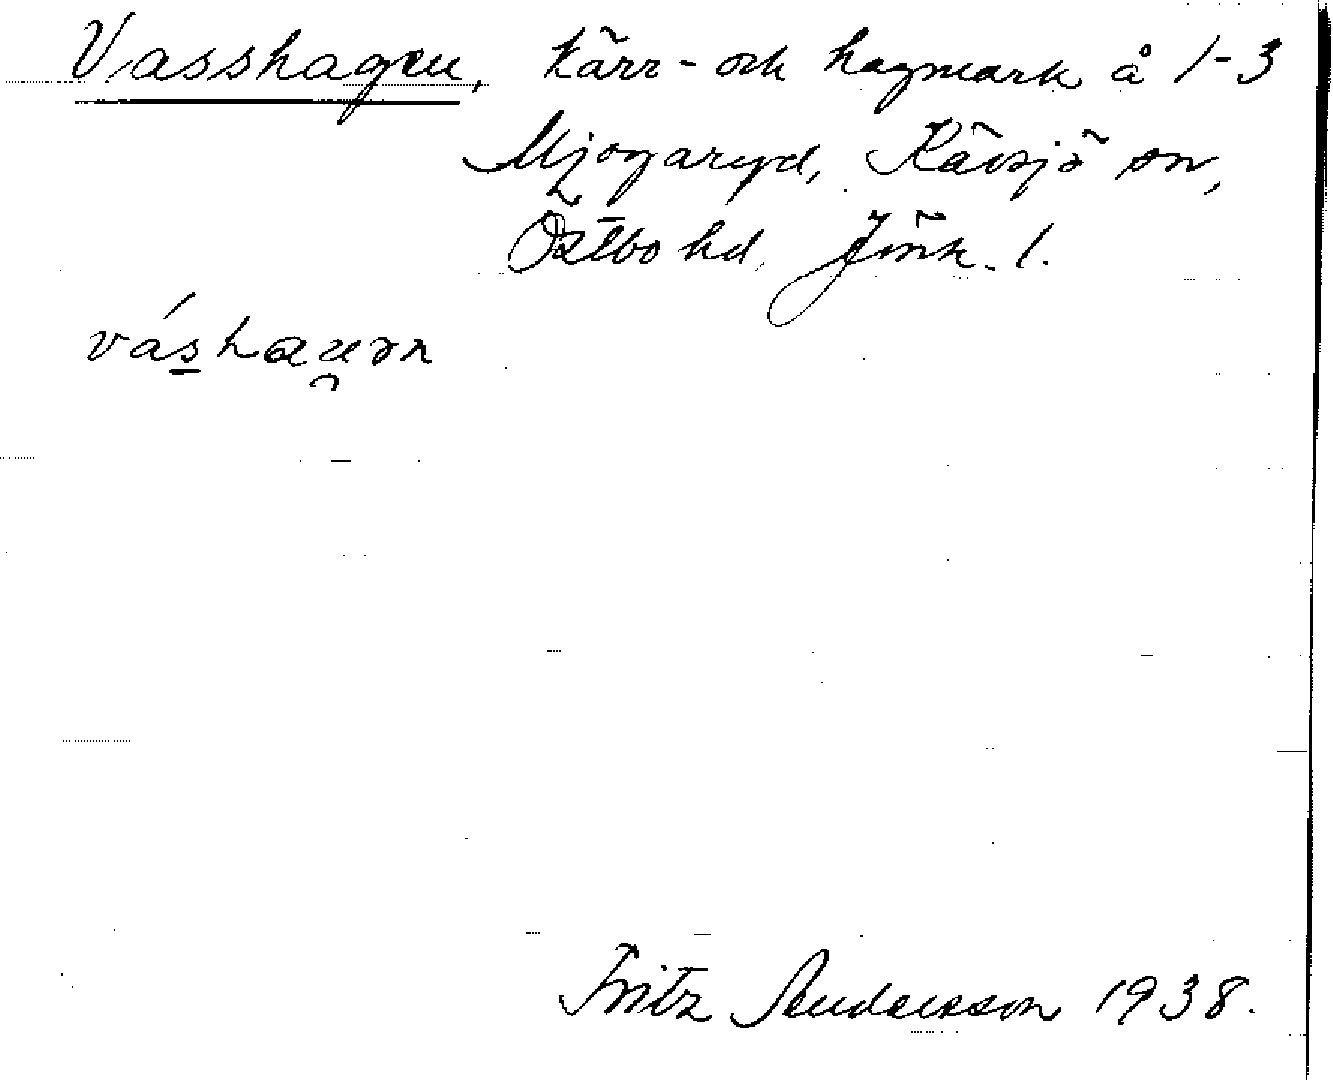 Vasshagen, kärr- och hagmark å 1-3
Mjogaryd, Kävsjö sn,
Östbo hd, Jönk. l.
Fritz Andersson 1938.